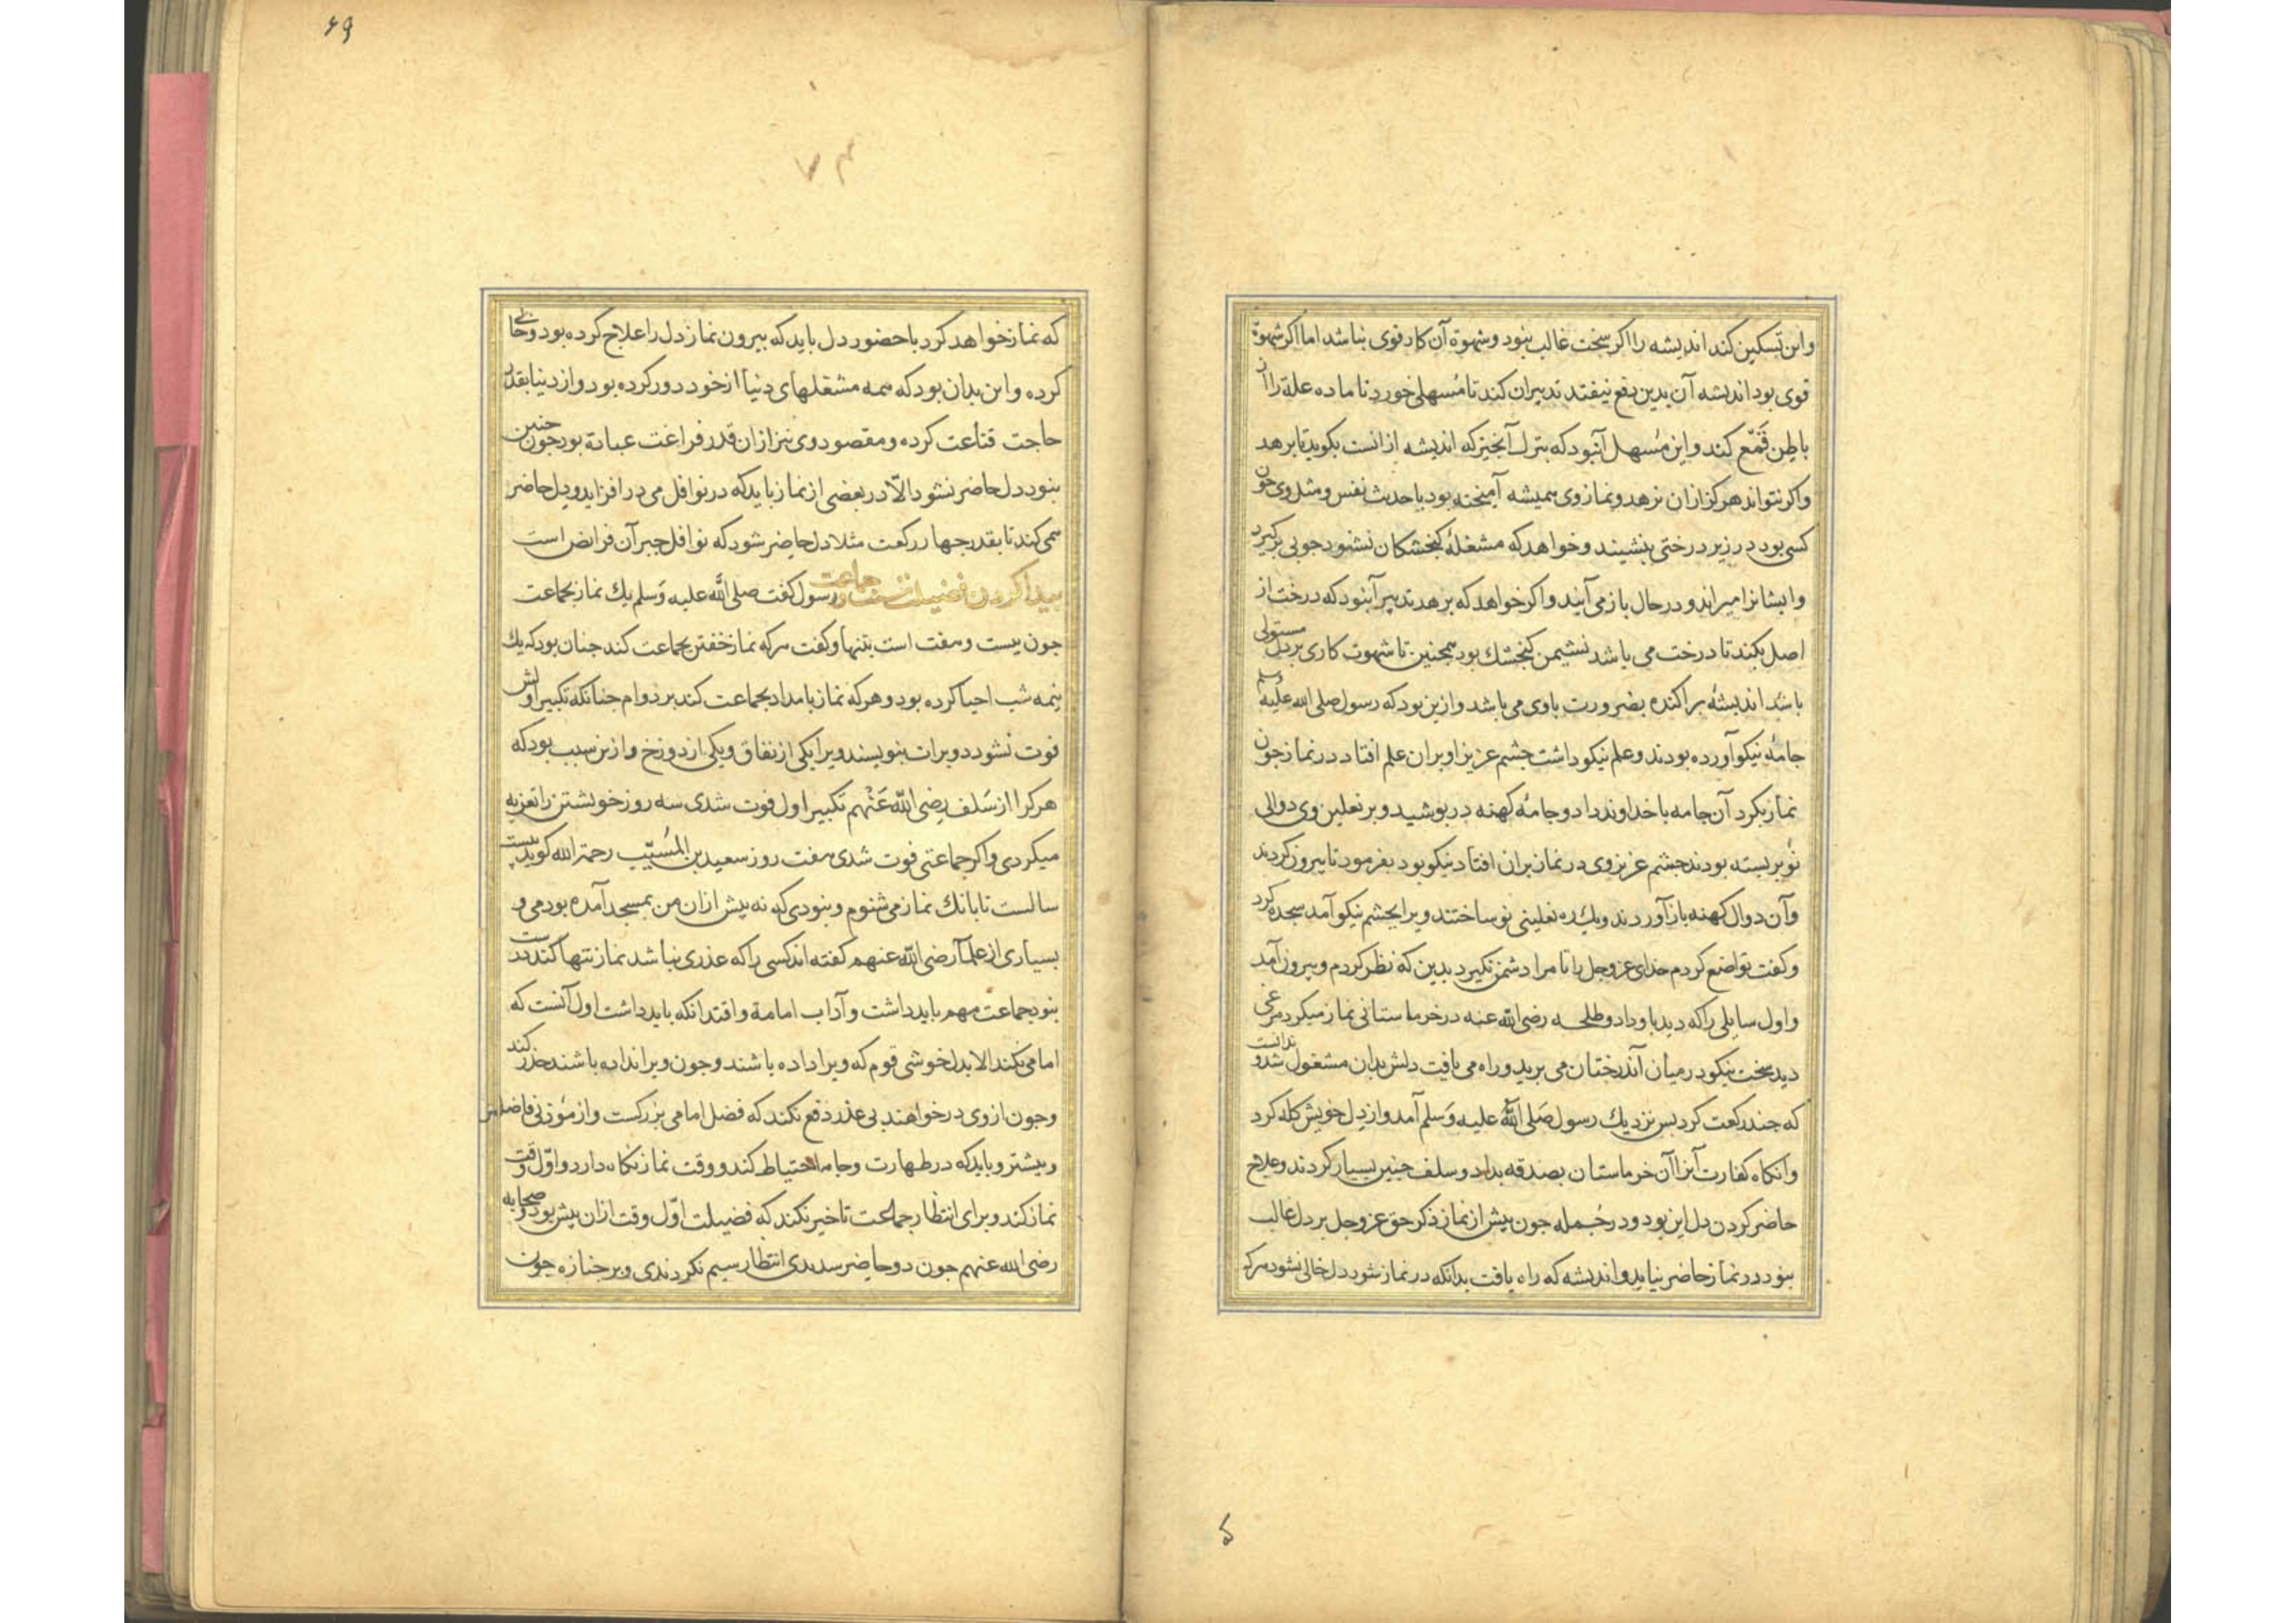 واین تسکین کند اندیشه را اکر سخت غالب نبود و شهوة آن کار قوی نباشد اما اکر شهوة
قوی بود اندیشه آن بدین دفع نیفتد تدبیر ان کند تا مُسهلی خورد تا ماده علة را از
باطن قَمْع کند و این مُسهل آن بود که بترك آنچیز که اندیشه ازانست بکوید تا برهد
واکر نتواند هرکز ازان نرهد و نماز وی همیشه آمیخته بود با حدیث نفس و مثل وی چون
کسی بود در زیر درختی بنشیند و خواهد که مشغلهٔ کنجشکان نشنود چوبی برکیرد
وایشانرا میراند و در حال باز می آیند و اکر خواهد که برهد تدبیر آن بود که درخت از
اصل بکند تا درخت می باشد نشیمن کنجشك بود همچنین تا شهوت کاری بر دل مستولی
باشد اندیشهٔ براکنده بضرورت باوی می باشد و ازین بود که رسول صلی الله علیه وسلم
جامهٔ نیکو آورده بودند و علم نیکو داشت چشم عزیز او بران علم افتاد در نماز چون
نماز بکرد آن جامه با خداوند داد و جامهٔ کهنه در پوشید و بر نعلین وی دوالی
نو بر بسته بودند چشم عزیز وی در نماز بران افتاد نیکو بود بفرمود تا بیرون کردند
و آن دوال کهنه باز آوردند و یك ره نعلینی نو ساختند ویرا بچشم نیکو آمد سجده کرد
وکفت تواضع کردم خدای عز وجل را تا مرا دشمن نکیرد بدین که نظر کردم و بیرون آمد
و اول سایلی را که دید باو داد و طلحه رضی الله عنه در خرماستانی نماز میکرد مرغی
دید سخت نیکو در میان آن درختان می پرید و راه می یافت دلش بدان مشغول شد و ندانست
که چند رکعت کرد پس نزدیك رسول صلی الله علیه وَسلم آمد و از دل خویش کله کرد
و انکاه کفارت آنرا آن خرماستان بصدقه بداد و سلف چنین بسیار کردند و علاج
حاضر کردن دل این بود و در جُمله چون پیش از نماز ذکر حق عز وجل بر دل غالب
نبود در نماز حاضر نیاید و اندیشه که راه یافت بدانکه در نماز شود دل خالی نشود هرکه
که
۶۹
۷۳
که نماز خواهد کرد با حضور دل باید که بیرون نماز دل را علاج کرده بود و خالی
کرده و این بدان بود که همه مشغلهای دنیا از خود دور کرده بود و از دنیا بقدر
حاجت قناعت کرده و مقصود وی نیز ازان قدر فراغت عبادة بود چون چنین
نبود دل حاضر نشود الّا در بعضی از نماز باید که در نوافل می در افزاید و دل حاضر
همی کند تا بقدر چهار رکعت مثلا دل حاضر شود که نوافل جبر آن فرائض است
پیدا کردن فضیلت سنت جماعت رسول کفت صلی الله علیه وَسلم یك نماز بجماعت
چون بیست و هفت است بتنها و کفت هرکه نماز خفتن بجماعت کند چنان بود که یك
نیمه شب احیا کرده بود و هرکه نماز بامداد بجماعت کند بر دوام چنانکه تکبیر اولش
فوت نشود دو برات بنویسند ویرا یکی از نفاق و یکی از دوزخ و ازین سبب بود که
هرکرا از سَلف رضی الله عَنْهم تکبیر اول فوت شدی سه روز خویشتن را تعزیه
میکردی و اکر جماعتی فوت شدی هفت روز سعید بن المُسَیّب رحمة الله کوید بیست
سالست تا بانك نماز می شنوم و نبودی که نه پیش ازان من بمسجد آمده بودمی و
بسیاری از علما رضی الله عنهم کفته اند کسی را که عذری نباشد نماز تنها کند درست
نبود جماعت مهم باید داشت و آداب امامة و اقتدا نکه باید داشت اول آنست که
امامی نکند الا بدل خوشی قوم که ویرا داده باشند و چون ویرا نداده باشند حذر کند
و چون از وی در خواهند بی عذر دفع نکند که فضل امامی بزرکست و از مؤذنی فاضلتر
و بیشتر و باید که در طهارت و جامه احتیاط کند و وقت نماز نکاه دارد و اوّل وقت
نماز کند و برای انتظار جماعت تاخیر نکند که فضیلت اوّل وقت ازان بیش بود و صحابه
رضی الله عنهم چون دو حاضر شدندی انتظار سیم نکردندی و بر جنازه چون